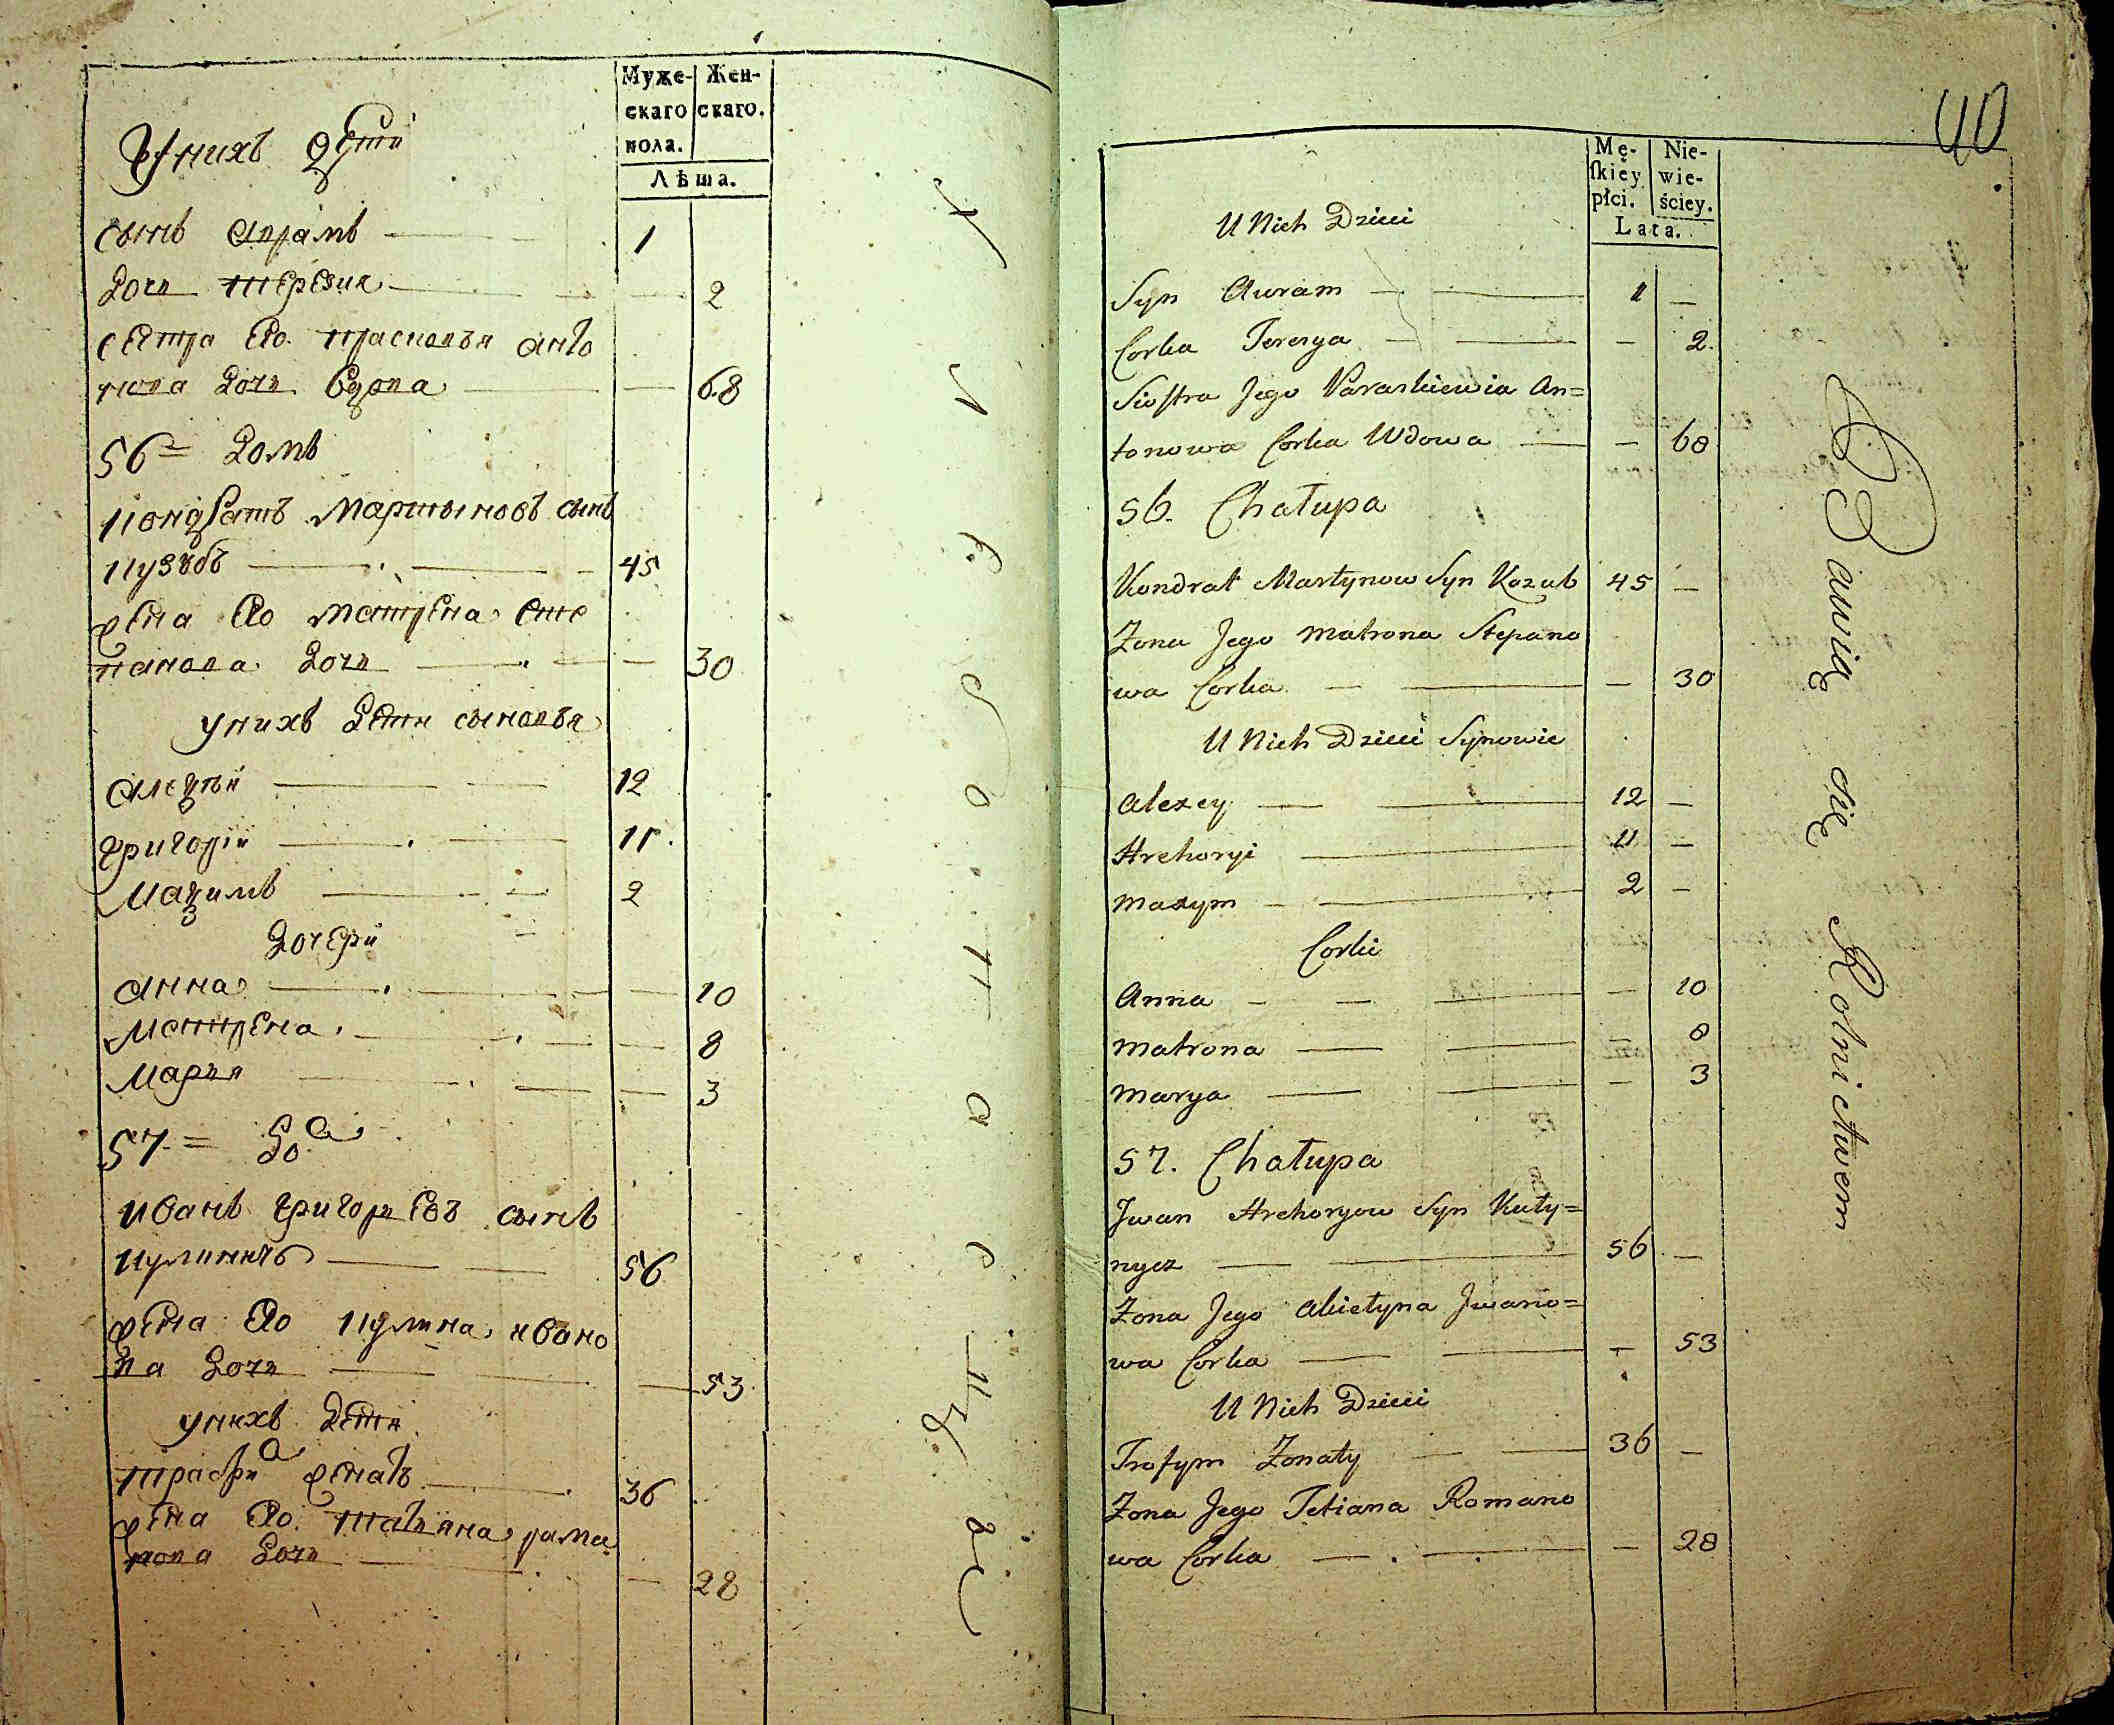 Муже- Жен-
скаго скаго.
пола.
Лѣта.
Унихъ дети
сынъ Аврамъ 1
дочь терезия 2
сестра Его прасковья анто
нова дочь вдова 68
56 = домъ
Кондратъ Мартыновъ сынъ
кузубъ 45
жена Его матрена сте
панова дочь 30
унихъ дети сыновья
Алексѣй 12
григорiй 11.
Максимъ 2
дочери
Анна 10
матрена 8
Марья 3
57 = до
иванъ григорьевъ сынъ
56
жена Его кулина ивано
ва дочь 53
унихъ дети
трафи женатъ 36
жена Его татьяна рама
нова дочь 28
40
Mę- Nie-
ſkiey wie-
płci. ściey.
Lata.
U Nich Dzieci
Syn Awram 1
Corka Terezya 2.
Siostra Jego Paraskiewia An=
tonowa Corka Wdowa 68
56. Chałupa
Kondrat Martynow Syn Kozub 45
Zona Jego Matrona Stepano
wa Corka 30
U Nich Dzieci Synowie
Alexey 12
Hrehoryi 11
Maxym 2
Corki
Anna 10
Matrona 8
Marya 3
57. Chałupa
Jwan Hrehoryow Syn Kuły=
nycz 56
Zona Jego Akiełyna Jwano=
wa Corka 53
U Nich Dzieci
Trofym Zonaty 36
Zona Jego Tetiana Romano
wa Corka 28
Bawią się Rolnictwem